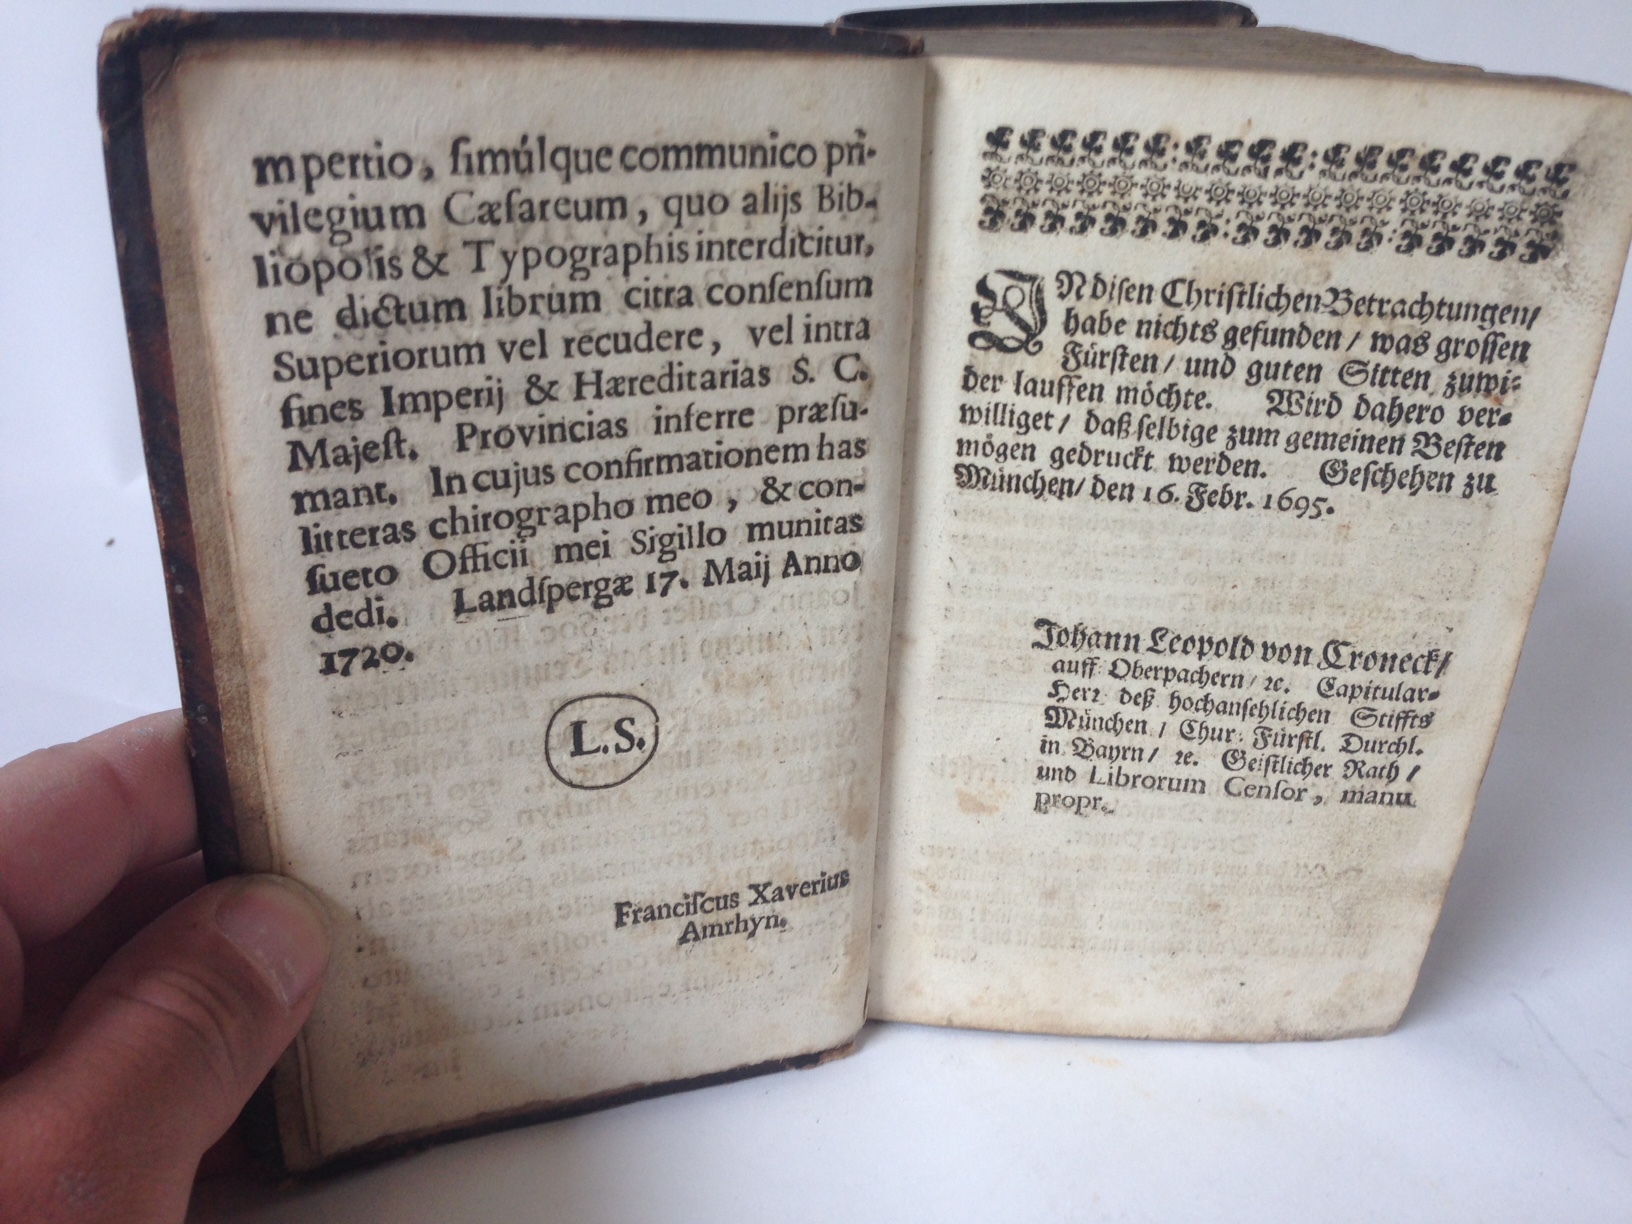 mpertio, simúlque communico pri-
vilegium Cæsareum, quo alijs Bib-
liopolis & Typographis interdicitur,
ne dictum librum citra consensum
Superiorum vel recudere, vel intra
fines Imperij & Hæreditarias S. C.
Majest. Provincias inferre præsu-
mant. In cujus confirmationem has
litteras chirographo meo, & con-
sueto Officii mei Sigillo munitas
dedi. Landspergæ 17. Maij Anno
1720.
L.S.
Franciscus Xaverius
Amrhyn.
IN disen Christlichen Betrachtungen/
habe nichts gefunden/ was grossen
Fürsten/ und guten Sitten zuwi-
der lauffen möchte. Wird dahero ver-
williget/ daß selbige zum gemeinen Besten
mögen gedruckt werden. Geschehen zu
München/ den 16. Febr. 1695.
Johann Leopold von Croneck/
auff Oberpachern/ ꝛc. Capitular-
Herꝛ deß hochansehlichen Stiffts
München/ Chur: Fürstl. Durchl.
in Bayrn/ ꝛc. Geistlicher Rath/
und Librorum Censor, manu
propr.